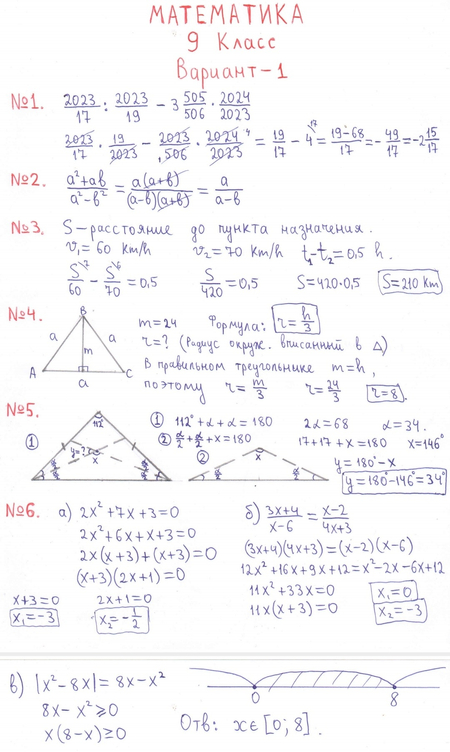 МАТЕМАТИКА
9 Класс
Вариант-1
№1. 2023/17 : 2023/19 − 3 505/506 · 2024/2023
2023/17 · 19/2023 − 2023/506 · 2024/2023 = 19/17 − 4 = (19−68)/17 = −49/17 = −2 15/17
№2. (a²+ab)/(a²−b²) = a(a+b)/((a−b)(a+b)) = a/(a−b)
№3. S − расстояние до пункта назначения.
v₁ = 60 km/h v₂ = 70 km/h t₁−t₂ = 0,5 h.
S/60 − S/70 = 0,5 S/420 = 0,5 S = 420·0,5 S = 210 km
№4. B m = 24 Формула: r = h/3
a a m r = ? (Радиус окруж. вписанный в △)
A a C В правильном треугольнике m = h,
поэтому r = m/3 r = 24/3 r = 8.
№5. 112° ① 112° + α + α = 180 2α = 68 α = 34.
① y=? x ② α/2 + α/2 + x = 180 17 + 17 + x = 180 x = 146°
α/2 α/2 α/2 α/2 ② x α/2 α/2 y = 180° − x
y = 180° − 146° = 34°
№6. а) 2x² + 7x + 3 = 0 б) (3x+4)/(x−6) = (x−2)/(4x+3)
2x² + 6x + x + 3 = 0 (3x+4)(4x+3) = (x−2)(x−6)
2x(x+3) + (x+3) = 0 12x² + 16x + 9x + 12 = x² − 2x − 6x + 12
(x+3)(2x+1) = 0 11x² + 33x = 0 x₁ = 0
x+3 = 0 2x+1 = 0 11x(x+3) = 0 x₂ = −3
x₁ = −3 x₂ = −1/2
в) |x² − 8x| = 8x − x² 0 8
8x − x² ≥ 0
x(8−x) ≥ 0 Отв: x∈[0; 8].